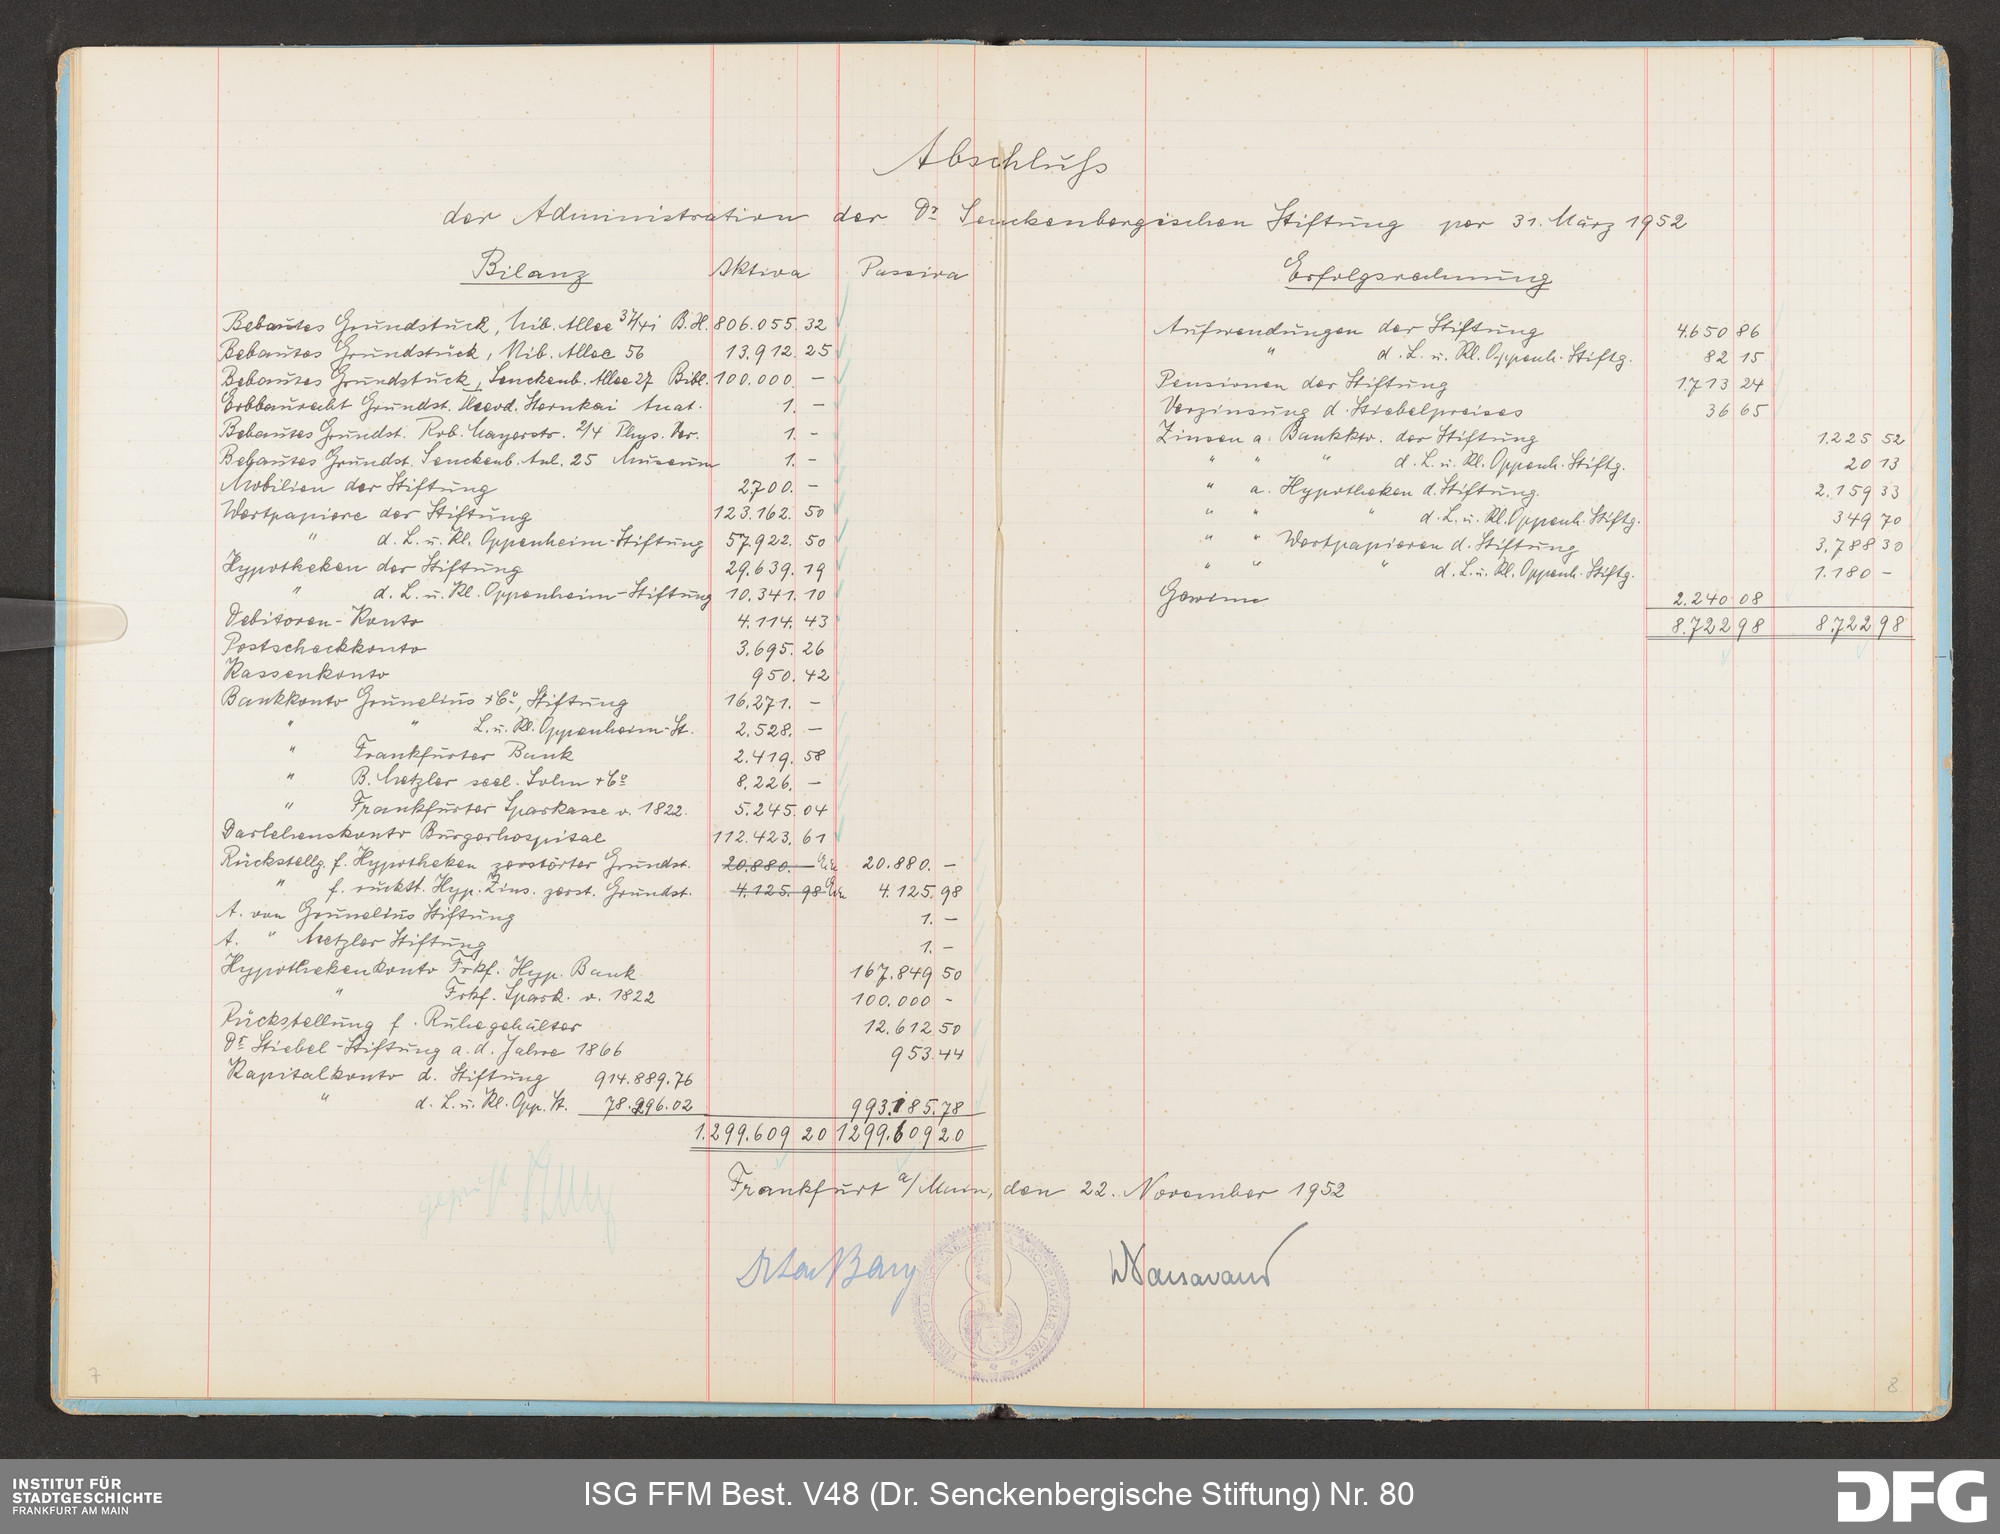 Abschluß
der Administration der Dr Senckenbergischen Stiftung per 31. März 1952
Bilanz Aktiva Passiva
Bebautes Grundstück, Nib. Allee 37/41 B.H. 806.055.32
Bebautes Grundstück, Nib. Allee 56 13.912.25
Bebautes Grundstück, Senckenb. Allee 27 Bibl. 100.000. —
Erbbaurecht Grundst. Sternkai Anat. 1. —
Bebautes Grundst. Rob. Mayerstr. 2/4 Phys. Ver. 1. -
Bebautes Grundst. Senckenb. Anl. 25 Museum 1. -
Mobilien der Stiftung 2700. —
Wertpapiere der Stiftung 123.162. 50
" d. L. u. Kl. Oppenheim-Stiftung 57.922. 50
Hypotheken der Stiftung 29.639.19
" d. L. u. Kl. Oppenheim-Stiftung 10.341.10
Debitoren-Konto 4.114.43
Postscheckkonto 3.695.26
Kassenkonto 950.42
Bankkonto Grunelius + Co, Stiftung 16.271. —
" " L. u. Kl. Oppenheim-St. 2.528. —
" Frankfurter Bank 2.419. 58
" B. Metzler seel. Sohn + Co 8.226. —
" Frankfurter Sparkasse v. 1822. 5.245.04
Darlehenskonto Bürgerhospital 112.423.61
Rückstellg. f. Hypotheken zerstörter Grundst. 20.880. — 20.880. —
" f. rückst. Hyp. Zins. zerst. Grundst. 4.125. 98 4.125.98
A. von Grunelius Stiftung 1. —
A. " Metzler Stiftung 1. —
Hypothekenkonto Frkf. Hyp. Bank 167.849 50
" Frkf. Spark. v. 1822 100.000 -
Rückstellung f. Ruhegehälter 12.612 50
Dr Stiebel-Stiftung a. d. Jahre 1866 953.44
Kapitalkonto d. Stiftung 914.889.76
" d. L. u. Kl. Opp. St. 78.296.02 993.185.78
1.299.609 20 1299.609 20
Erfolgsrechnung
Aufwendungen der Stiftung 4.650 86
" d. L. u. Kl. Oppenh. Stiftg. 82 15
Pensionen der Stiftung 1.713 24
Verzinsung d. Stiebelpreises 36 65
Zinsen a. Bankkto. der Stiftung 1.225 52
" " " d. L. u. Kl. Oppenh. Stiftg. 20 13
" a. Hypotheken d. Stiftung. 2.159 33
" " " d. L. u. Kl. Oppenh. Stiftg. 349 70
" " Wertpapieren d. Stiftung 3.788 30
" " " d. L. u. Kl. Oppenh. Stiftg. 1.180 -
Gewinn 2.240 08
8.722 98 8.722 98
Frankfurt a/Main, den 22. November 1952
geprüft
7
8
INSTITUT FÜR
STADTGESCHICHTE
FRANKFURT AM MAIN
ISG FFM Best. V48 (Dr. Senckenbergische Stiftung) Nr. 80
DFG